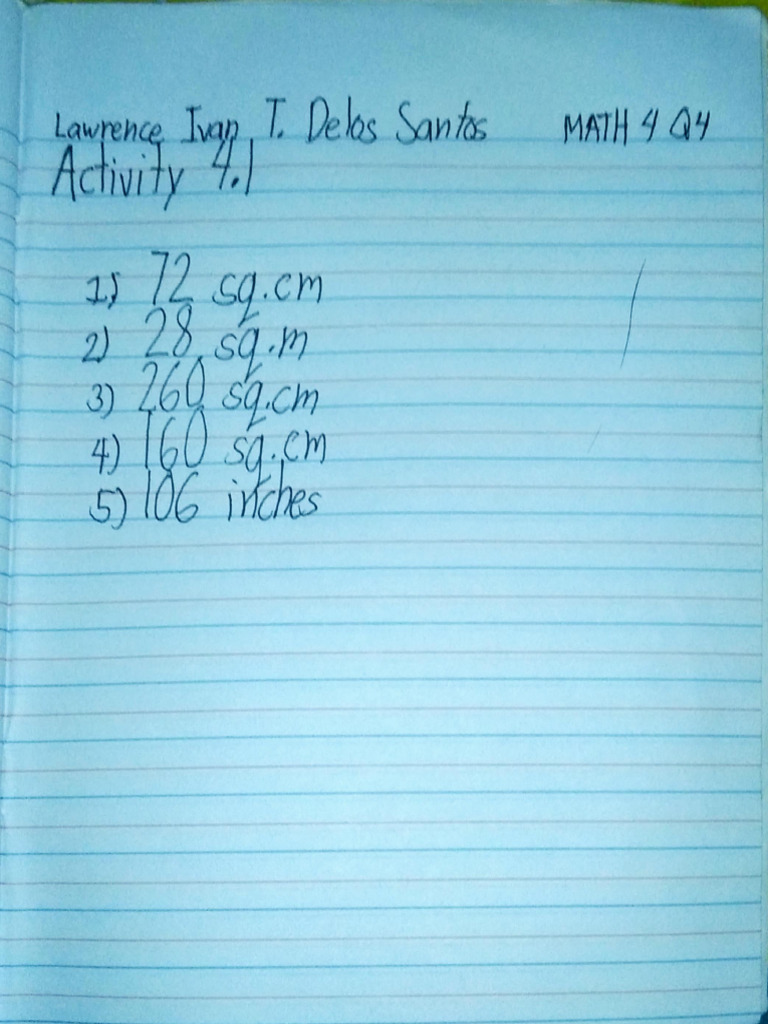 Lawrence Ivan T. Delos Santos MATH 4 Q4
Activity 4.1
1) 72 sq.cm
2) 28 sq.m
3) 260 sq.cm
4) 160 sq.cm
5) 106 inches